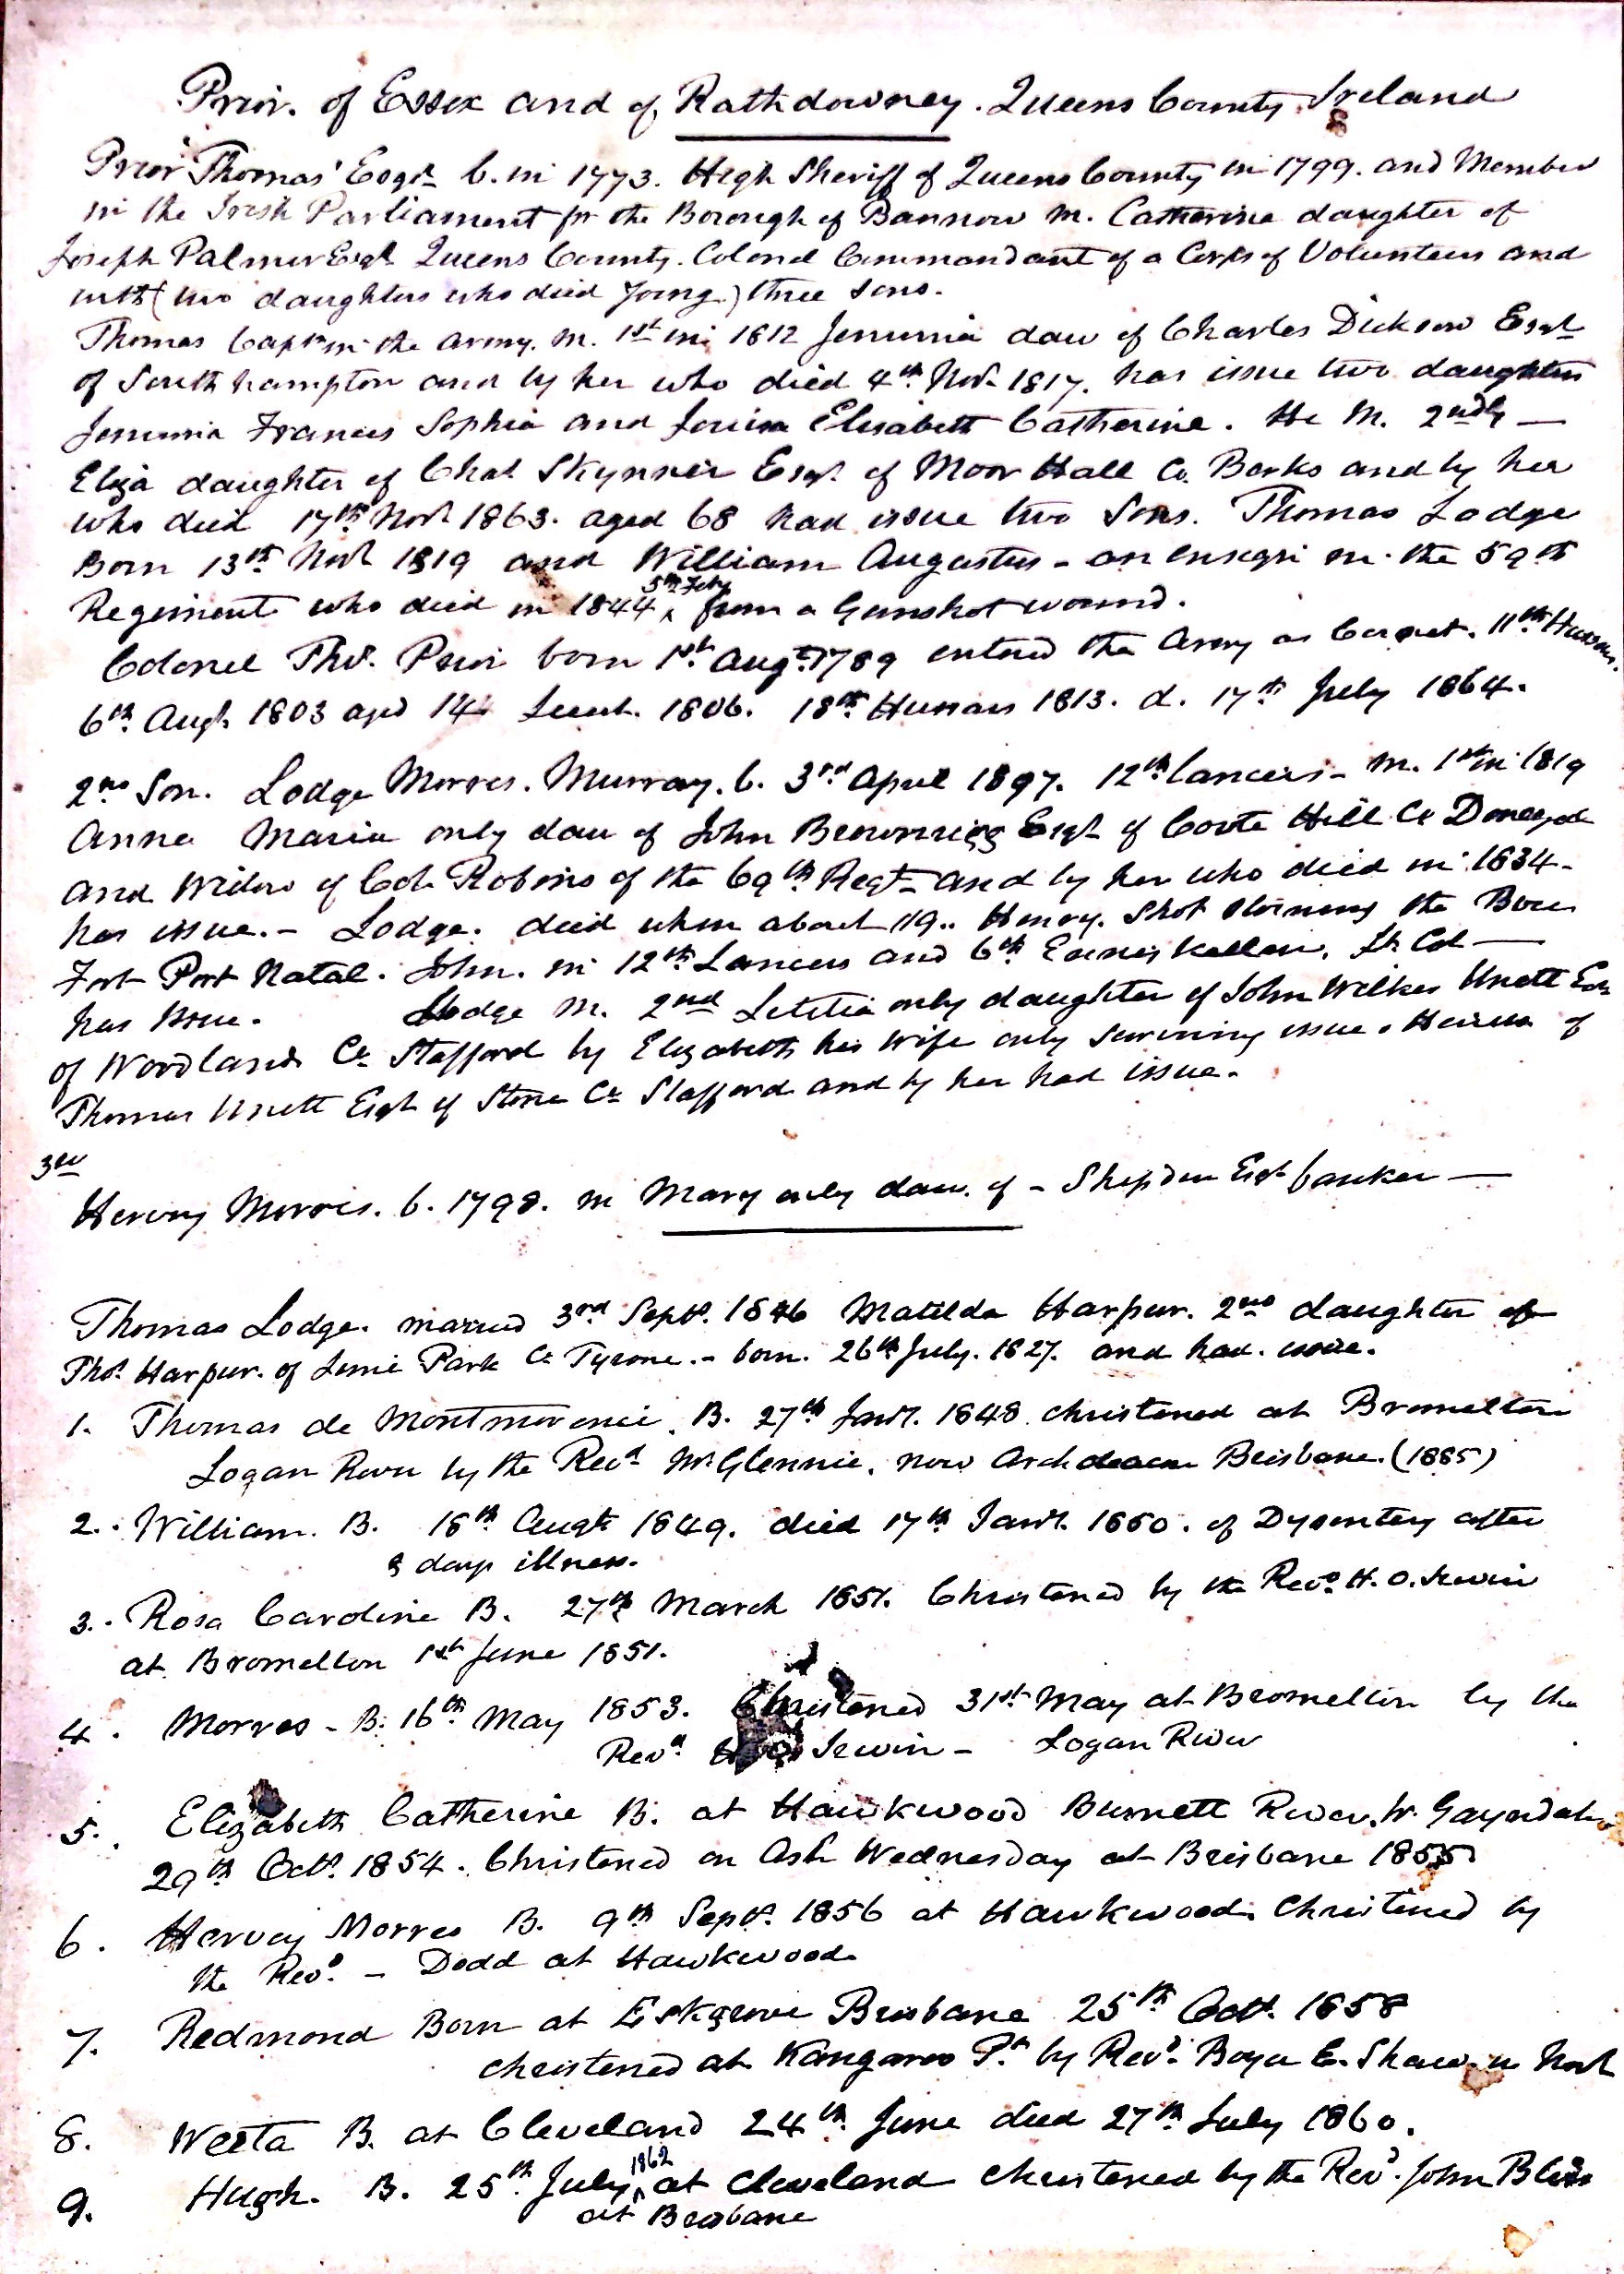 Prior. of Essex and of Rathdowney. Queens County Ireland
Prior Thomas Esqr b. in 1773. High Sheriff of Queens County in 1799. and Member
in the Irish Parliament for the Borough of Bannow m. Catherine daughter of
Joseph Palmer Esqr Queens County. Colonel Commandant of a Corps of Volunteers and
with (two daughters who died young) three sons.
Thomas Captn in the army. m. 1st in 1812 Jemima dau of Charles Dickson Esqr
of Southhampton and by her who died 4th Novr 1817. has issue two daughters
Jemima Frances Sophia and Louisa Elisabeth Catherine. He M. 2ndly —
Eliza daughter of Chas Skynner Esqr. of Moor Hall Co. Berks and by her
who died 17th Novr 1863. aged 68 had issue two Sons. Thomas Lodge
Born 13th Novr 1819 and William Augustus - an Ensign in the 59th
Regiment who died in 1844 5th Feby from a Gunshot wound.
Colonel Thos. Prior born 1st Augt. 1789 entered the Army as Cornet. 11th Hussars.
6th Augt. 1803 aged 14 Lieut. 1806. 18th Hussars 1813. d. 17th July 1864.
2nd Son. Lodge Morres. Murray. b. 3rd April 1897. 12th Lancers - m. 1st in 1819
Anna Maria only dau of John Brownrigg Esqr of Coote Hill Co Donegal
and Widow of Col. Robins of the 69th Regt - and by her who died in 1834 -
has issue. - Lodge. died when about 19.. Henry. Shot storming the Boer
Fort Port Natal. John. in 12th Lancers and 6th Enniskillen. Lt Col —
has issue. Lodge M. 2nd Letitia only daughter of John Wilkes Unett Esqr
of Woodlands Co Stafford by Elizabeth his wife only surviving issue & Heiress of
Thomas Unett Esqr of Stone Co Stafford and by her had issue.
3rd
Hervey Morres. b. 1798. m Mary only dau. of - Shepden Esqr banker —
Thomas Lodge. married 3rd Septr. 1846 Matilda Harpur. 2nd daughter of
Thos. Harpur. of Lime Park Co Tyrone. - born. 26th July. 1827. and had. issue.
1. Thomas de Montmorenci. B. 27th Janr. 1848. christened at Bromelton
Logan River by the Revd Mr Glennie. now Archdeacon Brisbane. (1885)
2. William. B. 18th Augt 1849. died 17th Janr. 1850. of Dysentery after
3 days illness.
3. Rosa Caroline B. 27th March 1851. Christened by the Revd. H. O. Irwin
at Bromelton 1st June 1851.
4. Morres - B. 16th May 1853. Christened 31st May at Bromelton by the
Revd H O Irwin - Logan River
5. Elizabeth Catherine B. at Hawkwood Burnett River. Nr. Gayndah.
29th Octr. 1854. Christened on Ash Wednesday at Brisbane 1855
6. Hervey Morres B. 9th Septr. 1856 at Hawkwood. Christened by
the Revd. - Dodd at Hawkwood
7. Redmond Born at Eskgrove Brisbane 25th Octr. 1858
christened at Kangaroo Pt. by Revd. B. E. Shaw. in Novr
8. Weeta B. at Cleveland 24th June died 27th July 1860.
9. Hugh. B. 25th July 1862 at Cleveland christened by the Revd. John Bliss
at Brisbane